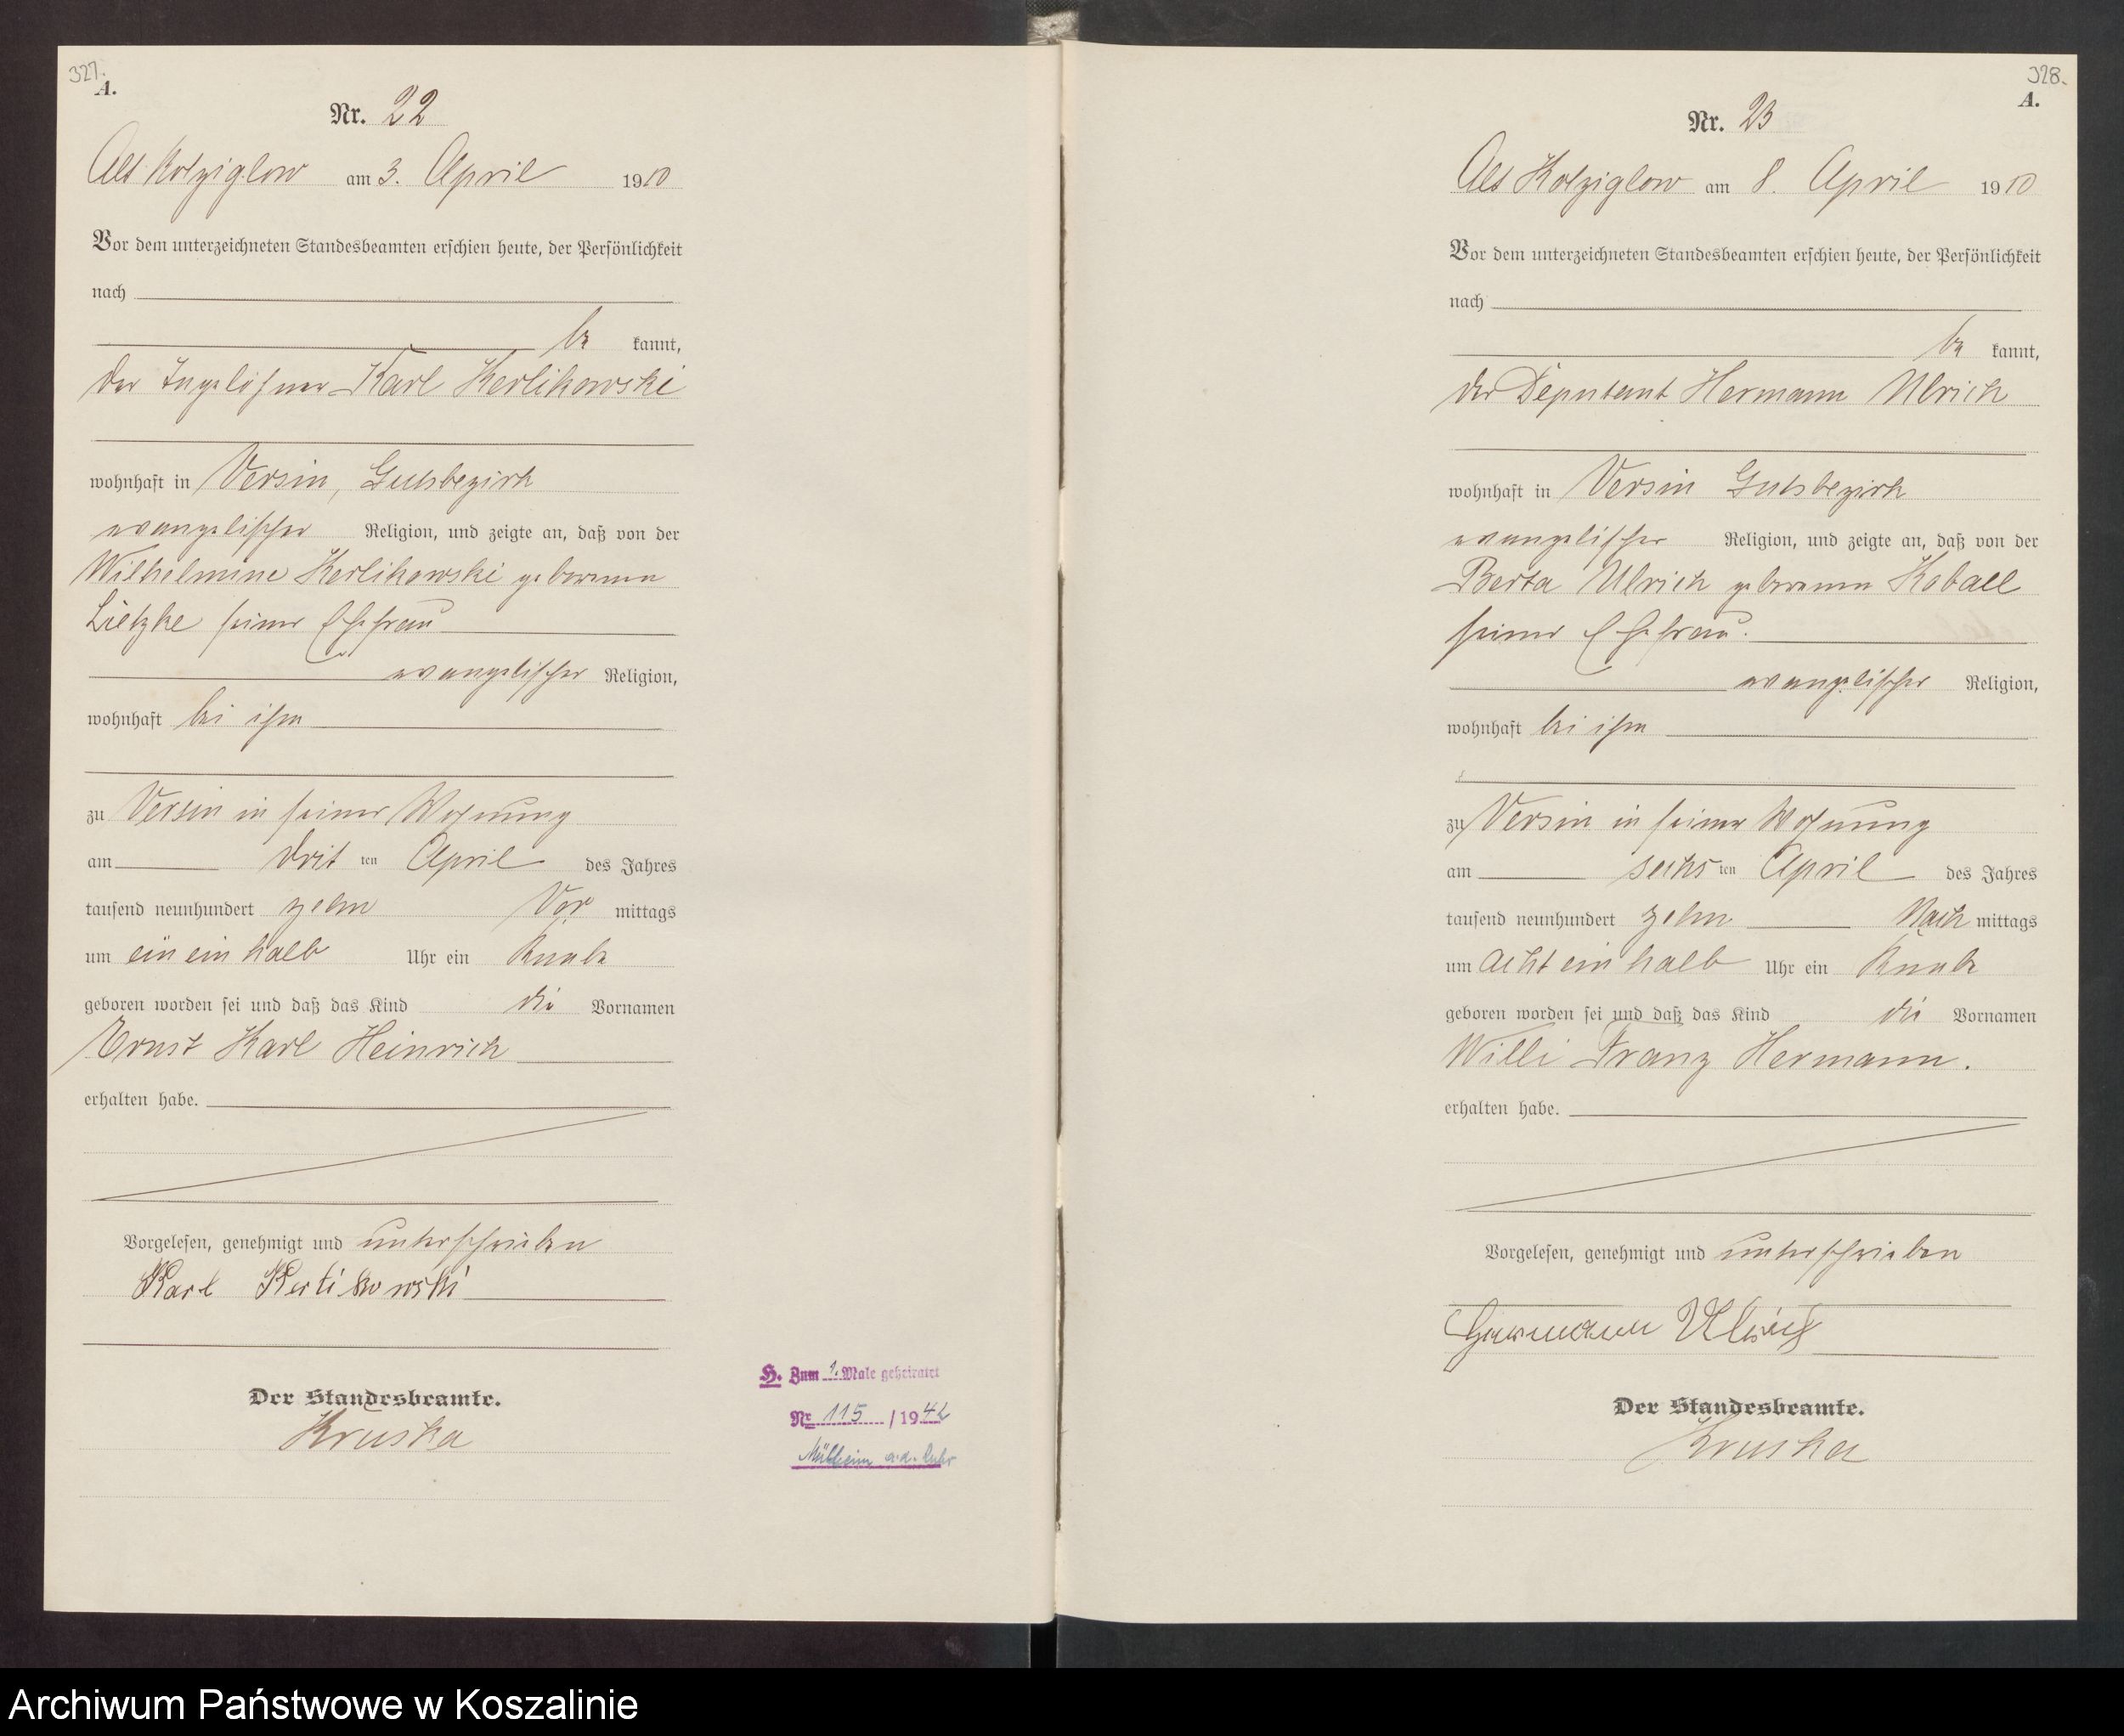 327.
A.
Nr. 22
Alt Kolziglow am 3. April 1910
Vor dem unterzeichneten Standesbeamten erschien heute, der Persönlichkeit
nach
be kannt,
der Tagelöhner Karl Kerlikowski
wohnhaft in Versin, Gutsbezirk
evangelischer Religion, und zeigte an, daß von der
Wilhelmine Kerlikowski geborenen
Lietzke seiner Ehefrau
evangelischer Religion,
wohnhaft bei ihm
zu Versin in seiner Wohnung
am drit ten April des Jahres
tausend neunhundert zehn Vor mittags
um ein ein halb Uhr ein Knabe
geboren worden sei und daß das Kind die Vornamen
Ernst Karl Heinrich
erhalten habe.
Vorgelesen, genehmigt und unterschrieben
Karl Kerlikowski
Der Standesbeamte.
Kruska
H. Zum 1. Male geheiratet
Nr. 115 / 1942
Mülheim a.d. Ruhr
328.
A.
Nr. 23
Alt Kolziglow am 8. April 1910
Vor dem unterzeichneten Standesbeamten erschien heute, der Persönlichkeit
nach
be kannt,
der Deputant Hermann Ulrich
wohnhaft in Versin Gutsbezirk
evangelischer Religion, und zeigte an, daß von der
Berta Ulrich geborenen Koball
seiner Ehefrau.
evangelischer Religion,
wohnhaft bei ihm
zu Versin in seiner Wohnung
am sechs ten April des Jahres
tausend neunhundert zehn Nach mittags
um acht ein halb Uhr ein Knabe
geboren worden sei und daß das Kind die Vornamen
Willi Franz Hermann.
erhalten habe.
Vorgelesen, genehmigt und unterschrieben
Hermann Ulrich
Der Standesbeamte.
Kruska
Archiwum Państwowe w Koszalinie